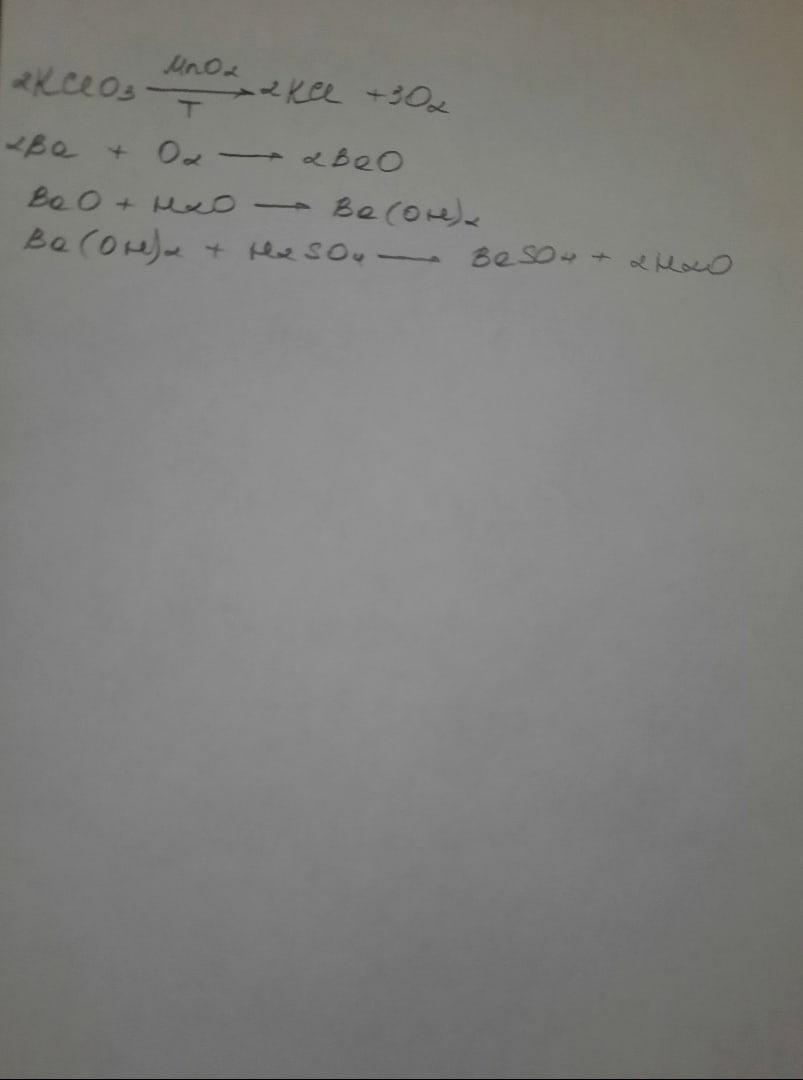 2KClO₃ —MnO₂/T→ 2KCl + 3O₂
2Ba + O₂ → 2BaO
BaO + H₂O → Ba(OH)₂
Ba(OH)₂ + H₂SO₄ → BaSO₄ + 2H₂O